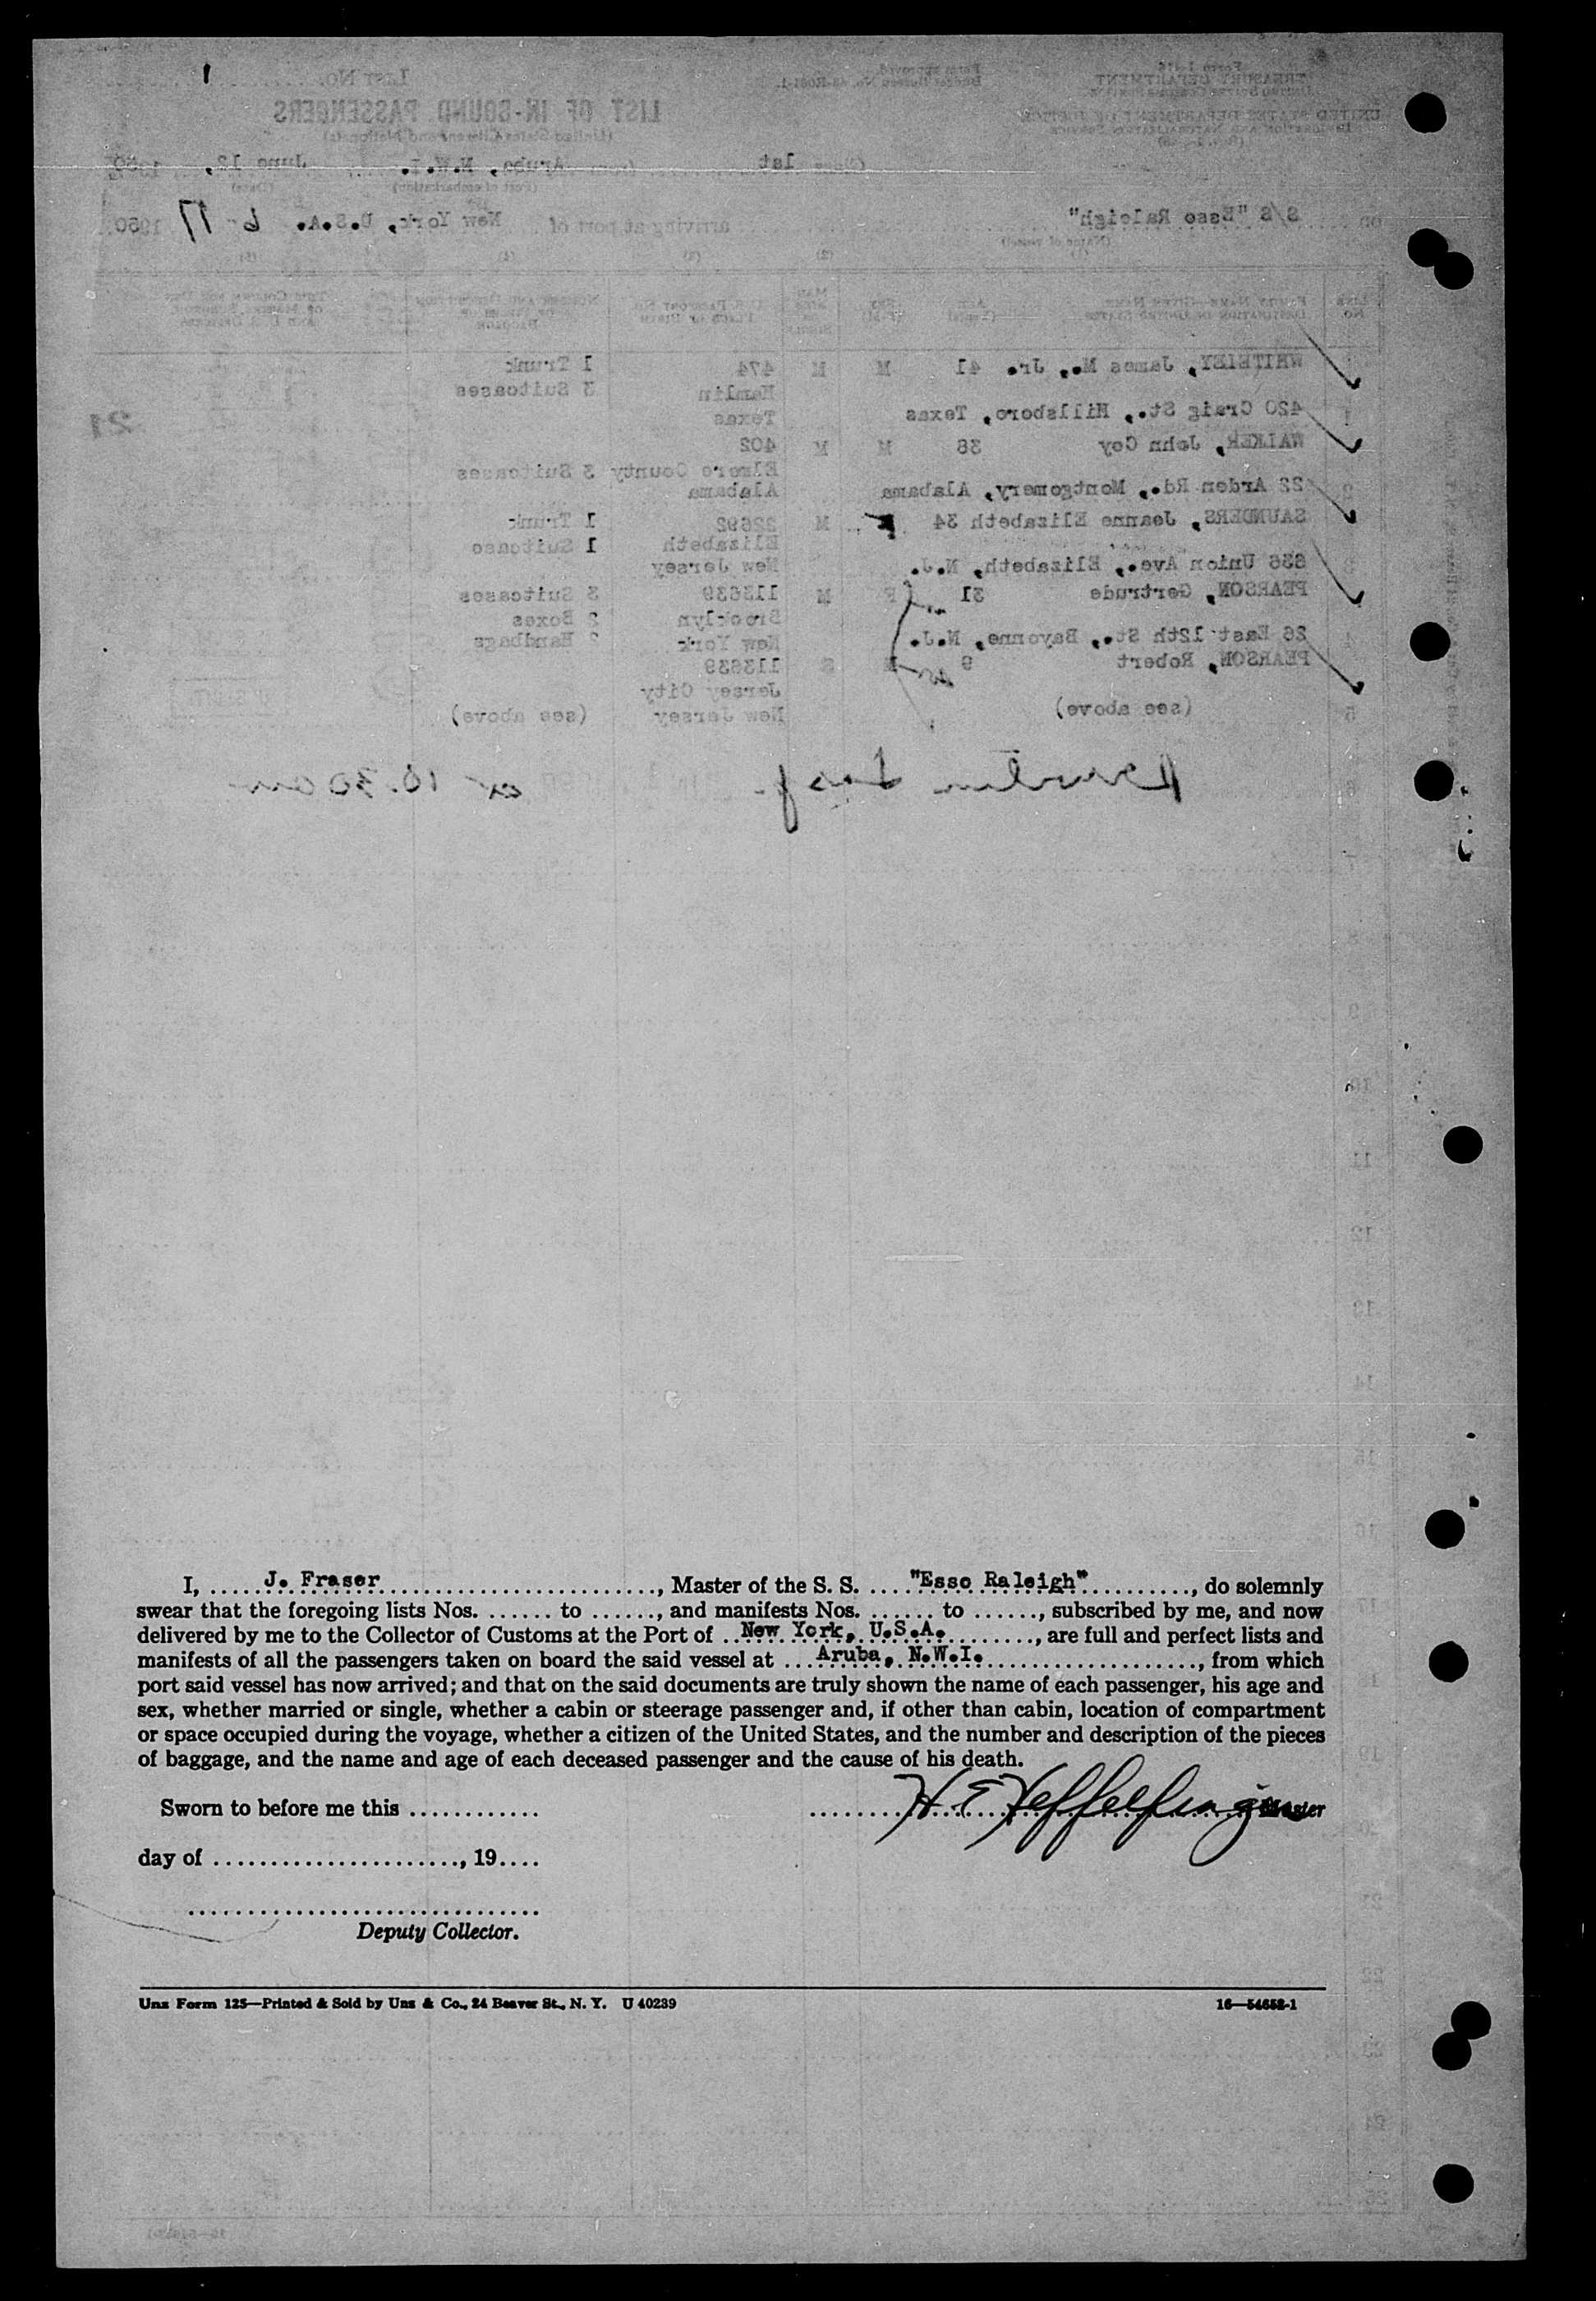 LIST No.
LIST OF IN-BOUND PASSENGERS
(United States Citizens and Nationals)
TREASURY DEPARTMENT
UNITED STATES DEPARTMENT OF JUSTICE
Class 1st from Aruba, N.W.I. June 12, 1950
(Port of embarkation) (Date)
on S/S "Esso Raleigh" arriving at port of New York, U.S.A. 6-17 1950.
(Name of vessel)
WHITELEY, James M., Jr. 41 M M 474 1 Trunk
Hamlin 3 Suitcases
420 Craig St., Hillsboro, Texas Texas
WALKER, John Coy 38 M M 402
Elmore County 3 Suitcases
22 Arden Rd., Montgomery, Alabama Alabama
SAUNDERS, Jeanne Elizabeth 34 F M 22692 1 Trunk
Elizabeth 1 Suitcase
636 Union Ave., Elizabeth, N.J. New Jersey
PEARSON, Gertrude 31 F M 113639 3 Suitcases
Brooklyn 2 Boxes
26 East 12th St., Bayonne, N.J. New York 2 Handbags
PEARSON, Robert 9 M S 113639
Jersey City
(see above) New Jersey (see above)
10.30 am
I, J. Fraser, Master of the S. S. "Esso Raleigh", do solemnly
swear that the foregoing lists Nos. ...... to ......, and manifests Nos. ...... to ......, subscribed by me, and now
delivered by me to the Collector of Customs at the Port of New York, U.S.A., are full and perfect lists and
manifests of all the passengers taken on board the said vessel at Aruba, N.W.I., from which
port said vessel has now arrived; and that on the said documents are truly shown the name of each passenger, his age and
sex, whether married or single, whether a cabin or steerage passenger and, if other than cabin, location of compartment
or space occupied during the voyage, whether a citizen of the United States, and the number and description of the pieces
of baggage, and the name and age of each deceased passenger and the cause of his death.
Sworn to before me this ............ H. E. Heffelfinger Master
day of ......................., 19....
Deputy Collector.
Unz Form 125—Printed & Sold by Unz & Co., 24 Beaver St., N. Y. U 40239 16—54652-1